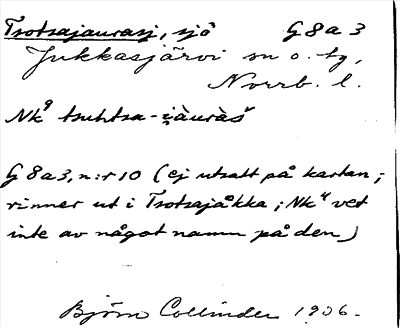 Tsotsajaurasj, sjö G 8 a 3
Jukkasjärvi sn o. tg,
Norrb. l.
Nk⁹ tsuhtsa-i̯àuràš
G 8 a 3, n:r 10 (ej utsatt på kartan;
rinner ut i Tsotsajåkka; Nk⁴ vet
inte av något namn på den)
Björn Collinder 1936.